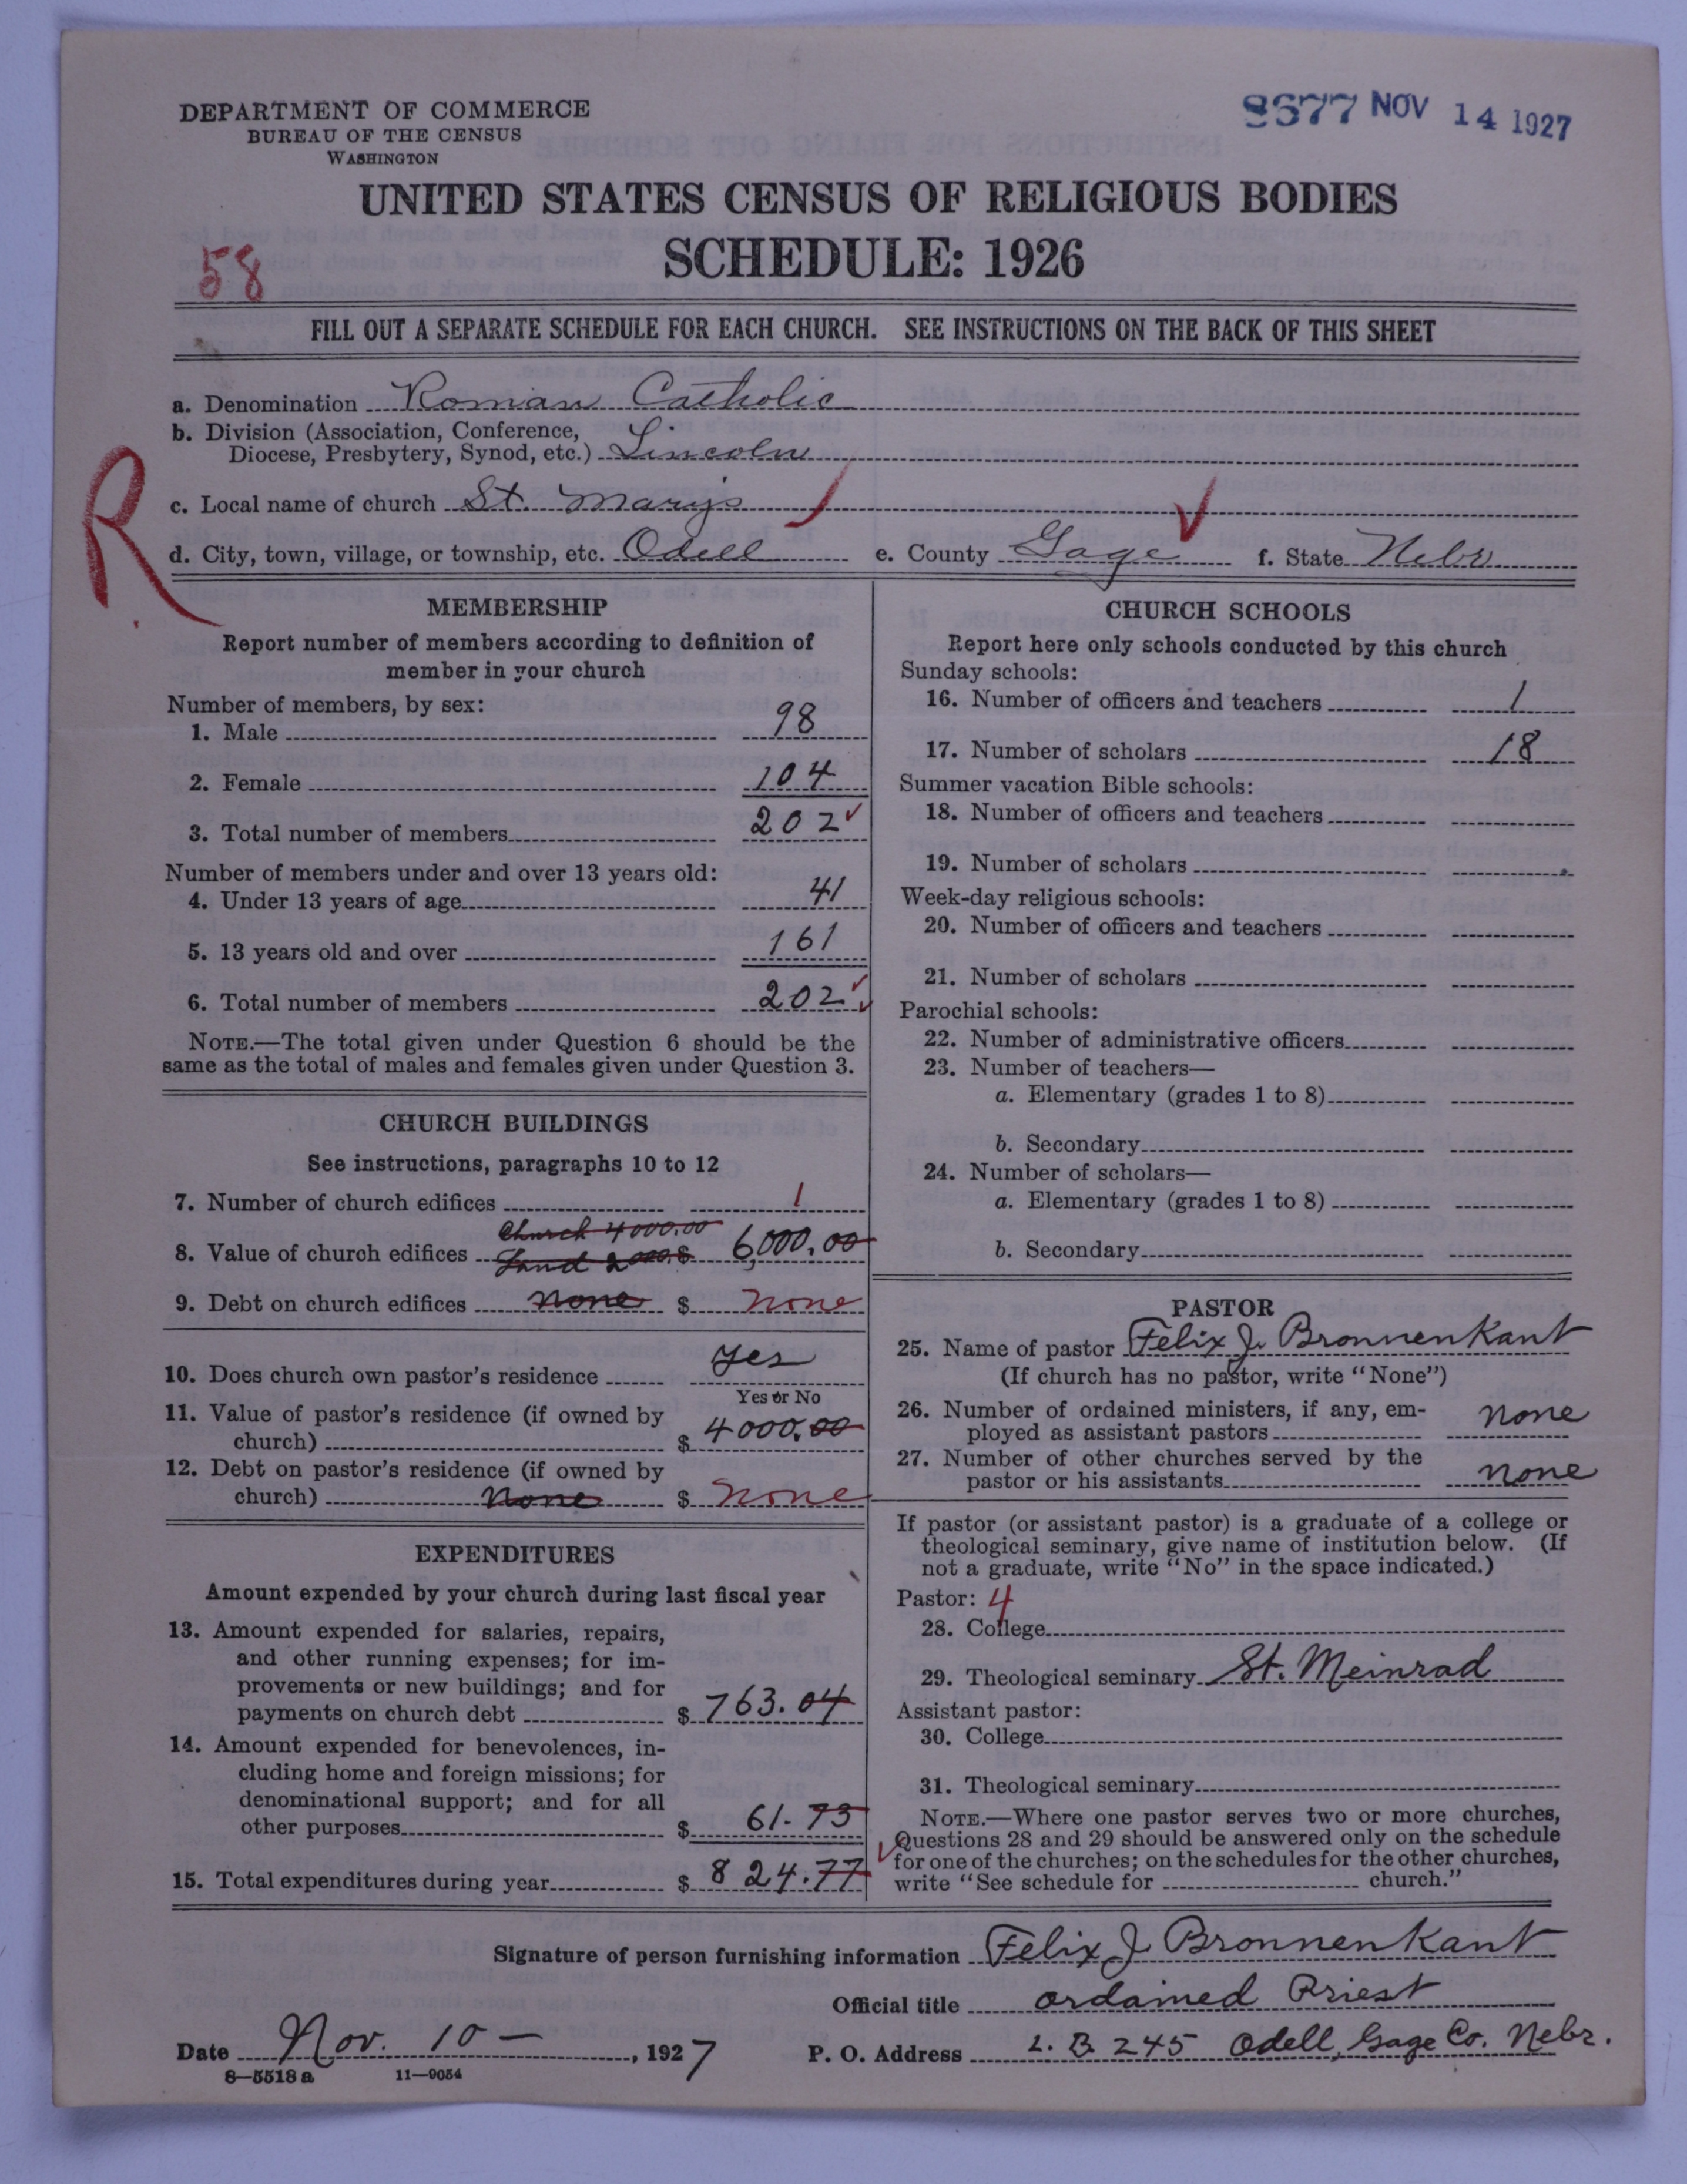 DEPARTMENT OF COMMERCE
BUREAU OF THE CENSUS
WASHINGTON
8677 NOV 14 1927
UNITED STATES CENSUS OF RELIGIOUS BODIES
SCHEDULE: 1926
58
FILL OUT A SEPARATE SCHEDULE FOR EACH CHURCH. SEE INSTRUCTIONS ON THE BACK OF THIS SHEET
a. Denomination Roman Catholic
b. Division (Association, Conference,
Diocese, Presbytery, Synod, etc.) Lincoln
R
c. Local name of church St. Mary's
d. City, town, village, or township, etc. Odell e. County Gage f. State Nebr
MEMBERSHIP
Report number of members according to definition of
member in your church
Number of members, by sex:
1. Male 98
2. Female 104
3. Total number of members 202
Number of members under and over 13 years old:
4. Under 13 years of age 41
5. 13 years old and over 161
6. Total number of members 202
NOTE.—The total given under Question 6 should be the
same as the total of males and females given under Question 3.
CHURCH BUILDINGS
See instructions, paragraphs 10 to 12
7. Number of church edifices 1
Church 4000.00
8. Value of church edifices Land 2000 $ 6,000.00
9. Debt on church edifices None $ none
10. Does church own pastor's residence yes
Yes or No
11. Value of pastor's residence (if owned by
church) $ 4000.00
12. Debt on pastor's residence (if owned by
church) None $ none
EXPENDITURES
Amount expended by your church during last fiscal year
13. Amount expended for salaries, repairs,
and other running expenses; for im-
provements or new buildings; and for
payments on church debt $ 763.04
14. Amount expended for benevolences, in-
cluding home and foreign missions; for
denominational support; and for all
other purposes $ 61.73
15. Total expenditures during year $ 824.77
CHURCH SCHOOLS
Report here only schools conducted by this church
Sunday schools:
16. Number of officers and teachers 1
17. Number of scholars 18
Summer vacation Bible schools:
18. Number of officers and teachers
19. Number of scholars
Week-day religious schools:
20. Number of officers and teachers
21. Number of scholars
Parochial schools:
22. Number of administrative officers
23. Number of teachers—
a. Elementary (grades 1 to 8)
b. Secondary
24. Number of scholars—
a. Elementary (grades 1 to 8)
b. Secondary
PASTOR
25. Name of pastor Felix J. Bronnenkant
(If church has no pastor, write "None")
26. Number of ordained ministers, if any, em-
ployed as assistant pastors none
27. Number of other churches served by the
pastor or his assistants none
If pastor (or assistant pastor) is a graduate of a college or
theological seminary, give name of institution below. (If
not a graduate, write "No" in the space indicated.)
Pastor: 4
28. College
29. Theological seminary St. Meinrad
Assistant pastor:
30. College
31. Theological seminary
NOTE.—Where one pastor serves two or more churches,
Questions 28 and 29 should be answered only on the schedule
for one of the churches; on the schedules for the other churches,
write "See schedule for church."
Signature of person furnishing information Felix J. Bronnenkant
Official title ordained Priest
Date Nov. 10 — , 1927 P. O. Address L. B. 245 Odell, Gage Co. Nebr.
8—5518a 11—9054